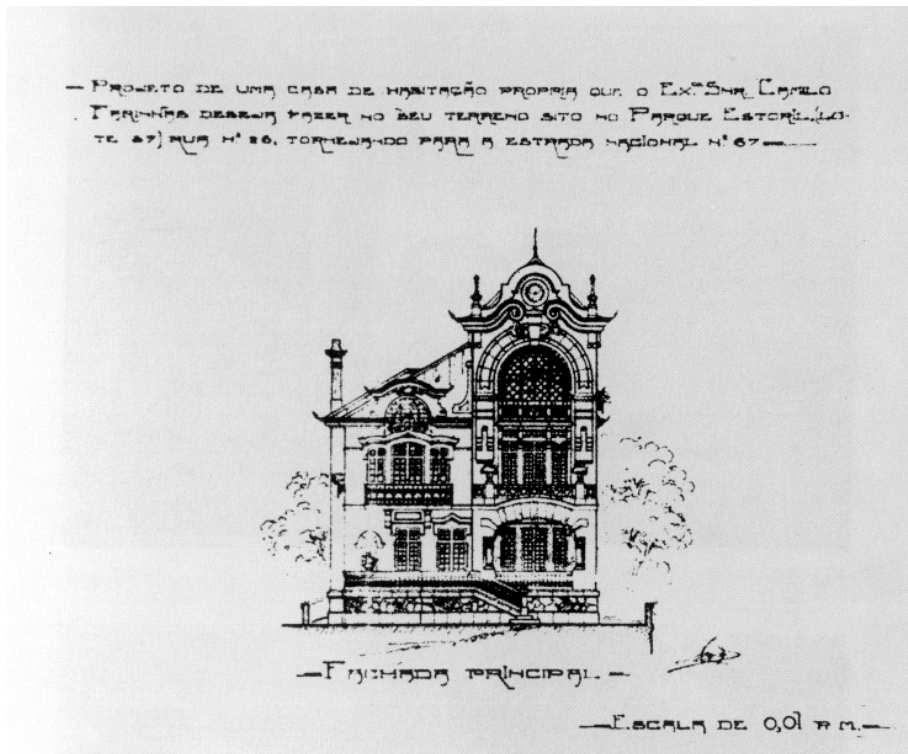 — PROJETO DE UMA CASA DE HABITAÇÃO PROPRIA QUE O EX.mo SNR. CAMILO
FARINHAS DESEJA FAZER NO SEU TERRENO SITO NO PARQUE ESTORIL, (LO-
TE 37) RUA Nº 26, TORNEJANDO PARA A ESTRADA NACIONAL Nº 67 —
— FACHADA PRINCIPAL —
— ESCALA DE 0,01 P. M. —